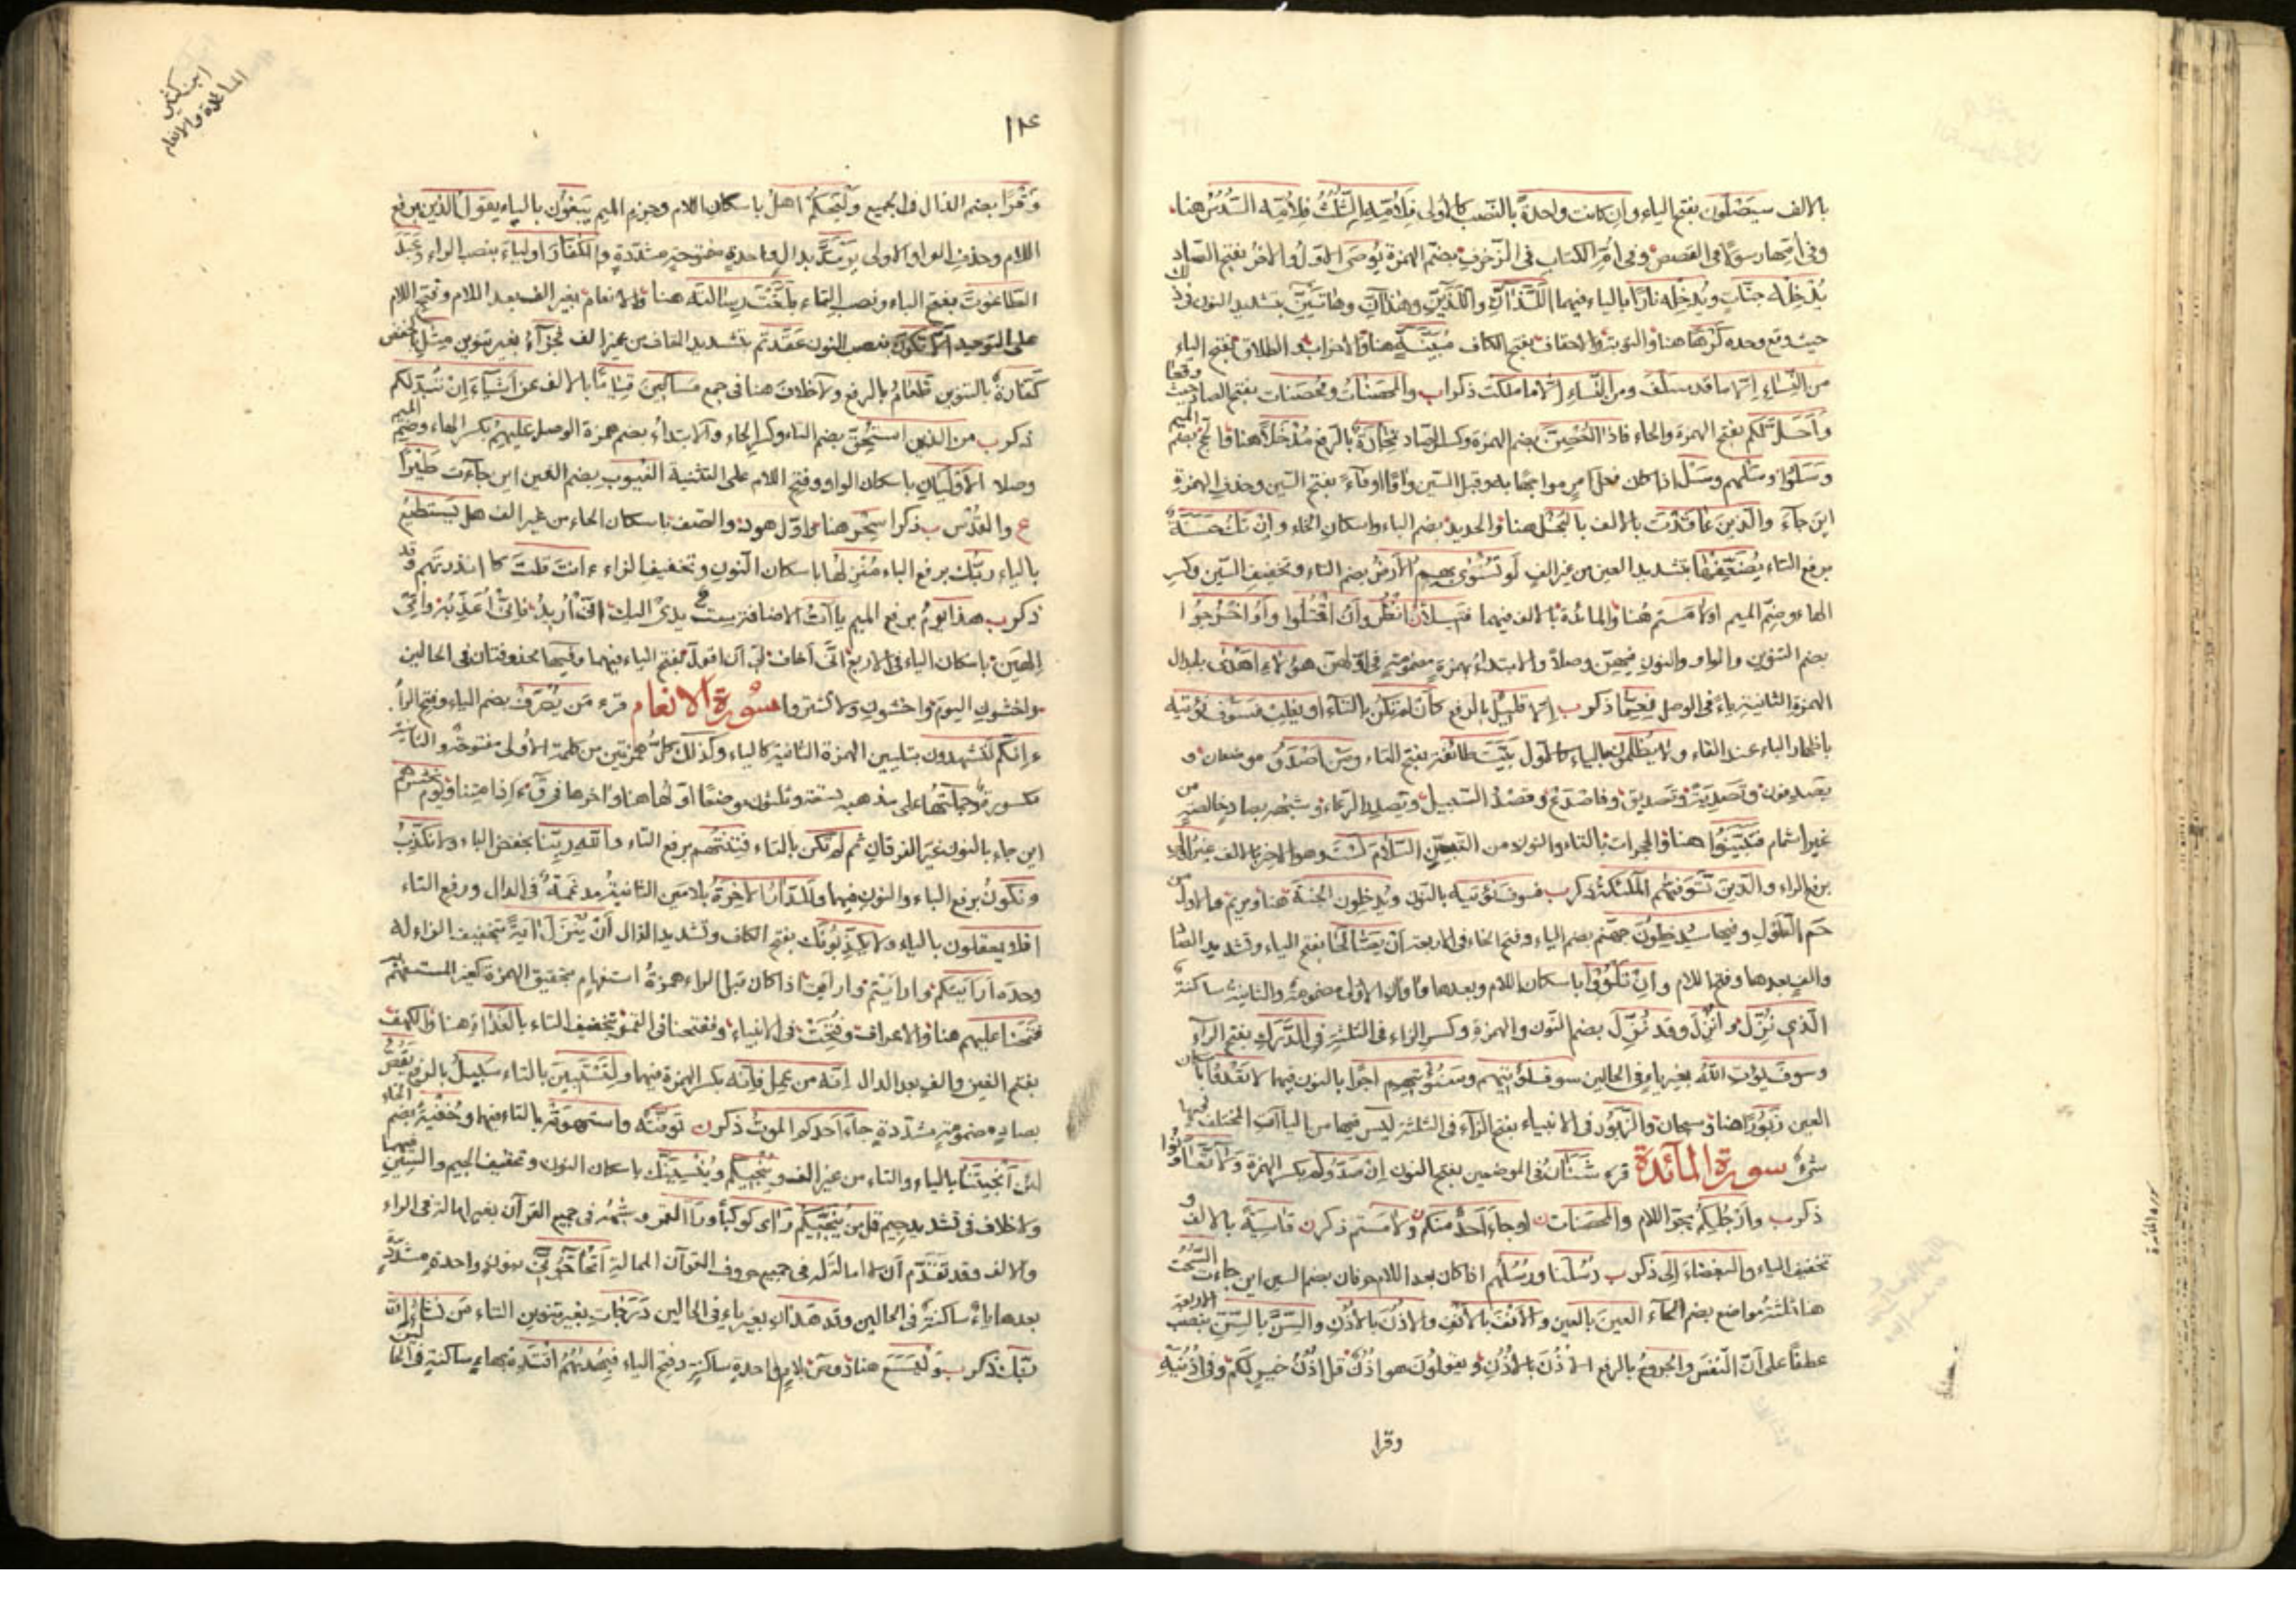 بالالف سيَصْلَون بفتح الياء وان كانت واحدةً بالنّصب كالاولى فلِاُمّه الثُّلُثُ فلِاُمّه السُّدُسُ هنا
وفى اُمّها رسولاً فى القصص وفى اُمِّ الكتاب فى الزّخرف بضم الهمزة يُوصَى الاوّل والاخرُ بفتح الصّاد
يُدْخِلْه جنّاتٍ ويُدخِلْه نارًا بالياء فيهما الَّذانِّ والَّذَيْنِّ وهٰذانِّ وهاتَيْنِّ بتشديد النون فى ذٰلك
حيث وقع وحده كَرْهًا هنا والتوبة والاحقاف بفتح الكاف مُبَيَّنَةٍ هنا والاحزاب والطلاق بفتح الياء
من النِّساء اِلّا ما قد سلف ومن النِّساء اِلّا ما ملكت ذكراب والمحصَنٰتُ ومُحصَنات بفتح الصاد حيث وقعا
وأَحَلَّ لكم بفتح الهمزة والحاء فاذا اُحْصِنَّ بضم الهمزة وكسر الصّاد تجارةٌ بالرفع مُدْخَلاً هنا والحج بضم الميم
وَسَلُوا وسَلْهم وسَلْ اذا كان فعل امرٍ مواجَهًا به وقبل السّين واوًا او فاءً بفتح السّين وحذف الهمزة
اين جاء والّذين عاقَدَتْ بالالف بالبُخْل هنا والحديد بضم الباء واسكان الخاء وإنْ تَكُ حسنةٌ
برفع التاء يُضَعِّفْها بتشديد العين من غير الفٍ لو تُسَوَّى بهِمُ الارضُ بضم التاء وتخفيف السّين وكسر
الهاء وضمّ الميم اولامَستم هنا والمائدة بالالف فيهما فتيلاً انظُر وأنُ اقتُلوا وأوُ اخرُجوا
بضم التنوين والواو والنون فيهنّ وصلاً والابتداءُ بهمزةٍ مضمومةٍ فى اوّلهنّ هؤلاء اهدى بابدال
الهمزة الثانية ياءً فى الوصل نِعِمّا ذكراب اِلّا قليلٌ بالرفع كأن لم تكن بالتاء او يغلِبْ فسوف نؤتيه
باظهار الباء عند الفاء ولا يُظلمون بالياء كالاول بيَّتَ طائفة بفتح التاء ومَن اَصْدَقُ موضعان و
يَصدِفون وتَصدِيَةً وتَصديق وفاصدَعْ وقَصْدُ السّبيل ويُصدِر الرِّعاء وشبهه بصادٍ خالصةٍ من
غير اشمام فتبيَّنوا هنا والحجرات بالتاء والنون من التبيّن السّلامَ لستَ وهو الاخر بالالف غيرُ اولى
برفع الراء والّذين تتوفّيهم الملئكة ذكراب فسوف نؤتيه بالنّون ويُدخَلون الجنة هنا ومريم والاول من
حٰم الطَّوْل وفيها سيُدخَلون جهنّم بضم الياء وفتح الخاء فى الاربعة أن يَصّالحا بفتح الياء وتشديد الصّاد
والفٍ بعدها وفتح اللام وإنْ تَلْوُوا باسكان اللام وبعدها واوان الاولى مضمومة والثانية ساكنة
الّذى نُزِّل واُنزِل وقد نُزِّل بضم النّون والهمزة وكسر الزاء فى الثلثة فى الدَّرَكِ بفتح الراء
وسوف يؤتِ الله بغير ياءٍ فى الحالين سوف نؤتيهم وسنؤتيهم اجرًا بالنون فيهما لا تَعْدُوا باسكان
العين زَبُورًا هنا وسبحان والزَّبُور فى الانبياء بفتح الزاء فى الثلثة ليس فيها من الياآت المختلف فيها
شئٌ سورة المائدة قرء شَنَآنُ فى الموضعين بفتح النون اِنْ صدّوكم بكسر الهمزة ولا تَّعاونوا
ذكراب وارجُلِكم بجرّ اللام والمحصَنات ن اوجاءَ اَحدٌ منكم ولامَستم ذكرن قاسِيَةً بالالف و
تخفيف الياء والبغضاءَ اِلى ذكراب رُسُلنا ورُسُلهم اذا كان بعد اللام حرفان بضم السين اين جاءت السُّحُت
هنا ثلثة مواضع بضم الحاء العينَ بالعين والانفَ بالانف والاذُنَ بالاذُن والسِّنَّ بالسّنّ بنصب الاربعة
عطفًا على أنّ النّفسَ والجروحُ بالرفع الاذُنَ بالاذُن ويقولون هو اُذُنٌ قل اُذُنُ خيرٍ لكم وفى اُذُنيه
وقرا
ابن كثير
المائدة والانعام
١٢٤
وَقْرًا بضم الذال فى الجميع ولْيَحكُمْ اهلُ باسكان اللام وجزم الميم يَبغون بالياء يقولُ الّذين برفع
اللام وحذف الواو الاولى يَرتَدَّ بدالٍ واحدةٍ مفتوحةٍ مشدّدةٍ والكفّارَ اولياءَ بنصب الراء وعَبَدَ
الطّاغوتَ بفتح الباء ونصب التاء بلّغتَ رسالتَه هنا والانعام بغير الف بعد اللام وفتح اللام
على التوحيد اَلّا تكونَ بنصب النون عقَّدتم بتشديد القاف من غير الف فجزاءُ بغير تنوين مثلِ بالخفض
كفّارةٌ بالتنوين طعامُ بالرفع ولا خلاف هنا فى جمع مساكين قيامًا بالالف عن اشياءَ اِنْ تُبدَ لكم
ذكراب من الّذين استُحِقَّ بضم التاء وكسر الحاء والابتداءُ بضم همزة الوصل عليهِمُ بكسر الهاء وضم الميم
وصلا الاَوْلَيانِ باسكان الواو وفتح اللام على التثنية الغُيوبِ بضم الغين اين جاءت طَيْرًا
ع والقُدْس ب ذكرا سِحْر هنا واوّل هود والصّف باسكان الحاء من غير الف هل يَستطيعُ
بالياء ربُّك برفع الباء مُنْزِلُها باسكان النّون وتخفيف الزاء ءانتَ قلتَ كاانذرتهم قد
ذكراب هذا يومُ برفع الميم ياآتُ الاضافة ستٌ يدىْ اليك اِنّىْ اُريد فانّىْ اُعذّبه واُمّىْ
اِلٰهين باسكان الياء فى الاربع اِنّىَ اخاف لىَ أن اقول بفتح الياء فيهما وفيها محذوفتان فى الحالين
واخشونِ اليوم واخشونِ ولا تشتروا سورة الانعام قرء مَن يُصْرَفْ بضم الياء وفتح الراء
ءاِنّكم لتشهدون بتليين الهمزة الثانية كالياء وكذلك كلُّ همزتين من كلمة الاولى مفتوحة والثانية
مكسورة وجملتُها على مذهبه ستة وثلثون موضعًا اوّلُها هنا واٰخرها فى قٓ ءاِذا متنا ويوم نحشرهم
اين جاء بالنون غير الفرقان ثم لم تكن بالتاء فتنتُهم برفع التاء والله ربِّنا بخفض الباء ولا نكذّبُ
ونكونُ برفع الباء والنون فيهما ولَلدّارُ الاخرةُ بلامين الثانيةُ مدغمة فى الدال ورفع التاء
افلا يعقلون بالياء ولا يُكَذِّبونك بفتح الكاف وتشديد الذال أنْ يُنْزِلَ اٰيةً بتخفيف الزاء له
وحدَه أرأيتكم وأرأيتم وأرأيت اذا كان قبل الراء همزةُ استفهامٍ بتحقيق الهمزة كغير المستفهم
فتَحنا عليهم هنا والاعراف وفُتِحَتْ فى الانبياء وففتحنا فى القمر بتخفيف التاء بالغداةِ هنا والكهف
بفتح الغين والفٍ بعد الدال اِنّه من عمل فاِنّه بكسر الهمزة فيهما ولتستبين بالتاء سبيلُ بالرفع يَقُصُّ
بصادٍ مضمومةٍ مشدّدةٍ جاءَ احدَكم الموتُ ذكرن توفّتْه واستهوتْه بالتاء فيهما وخُفْيَةً بضم الخاء
لئن انجيتَنا بالياء والتاء من غير الف ويُنجيكم ويُنسِيَنَّك باسكان النون وتخفيف الجيم والسّين فيهما
ولا خلاف فى تشديد جيم قل مَن يُنَجِّيكم رَاٰى كوكبًا ورَاَ القمر وشبهُه فى جميع القرآن بغير امالة فى الراء
والالف وقد تقدّم أن لا امالةَ له فى جميع حروف القرآن الممالة اَتُحاجّونّى بنونٍ واحدةٍ مشدّدةٍ
بعدها ياءٌ ساكنةٌ فى الحالين وقد هدٰانِ بغير ياءٍ فى الحالين درجاتِ بغير تنوين التاء مَن نشاءُ اِنّ
ربّك ذكراب ولْيَسَع هنا وصٓ بلامٍ واحدةٍ ساكنةٍ وفتح الياء فبِهُدٰيهُمُ اقتدِه بهاءٍ ساكنةٍ فى الحالين
سورة المائدة